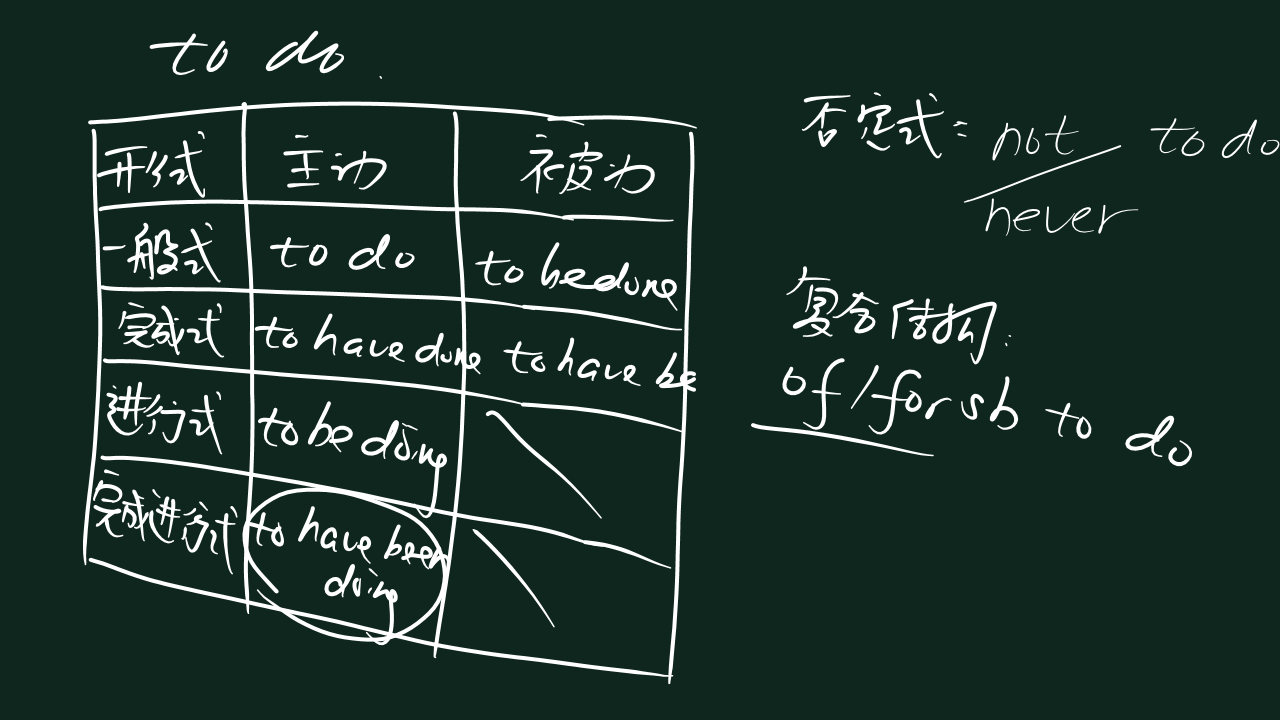 to do
形式 主动 被动
一般式 to do to be done
完成式 to have done to have be
进行式 to be doing
完成进行式 to have been
doing
否定式: not to do
never
复合结构:
of/for sb to do